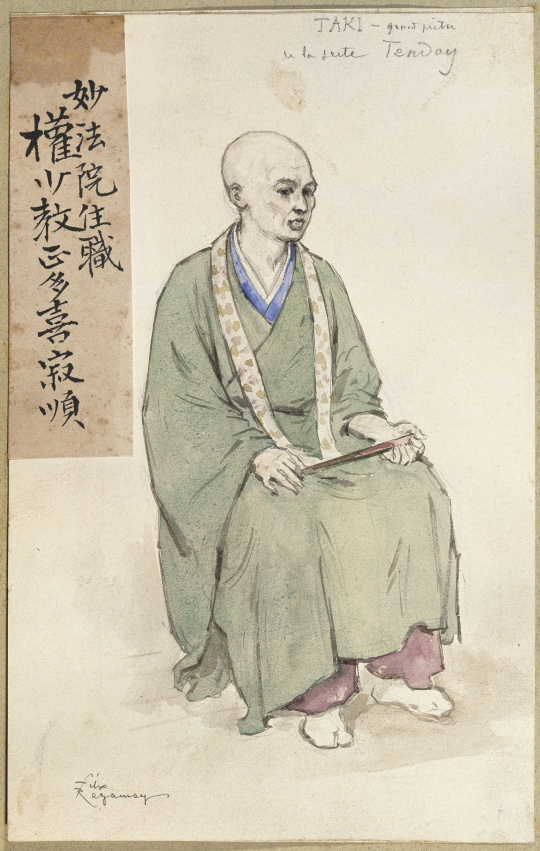 TAKI - grand prêtre
de la secte Tendaÿ
妙法院住職
權少教正多喜寂順
Félix
Régamey